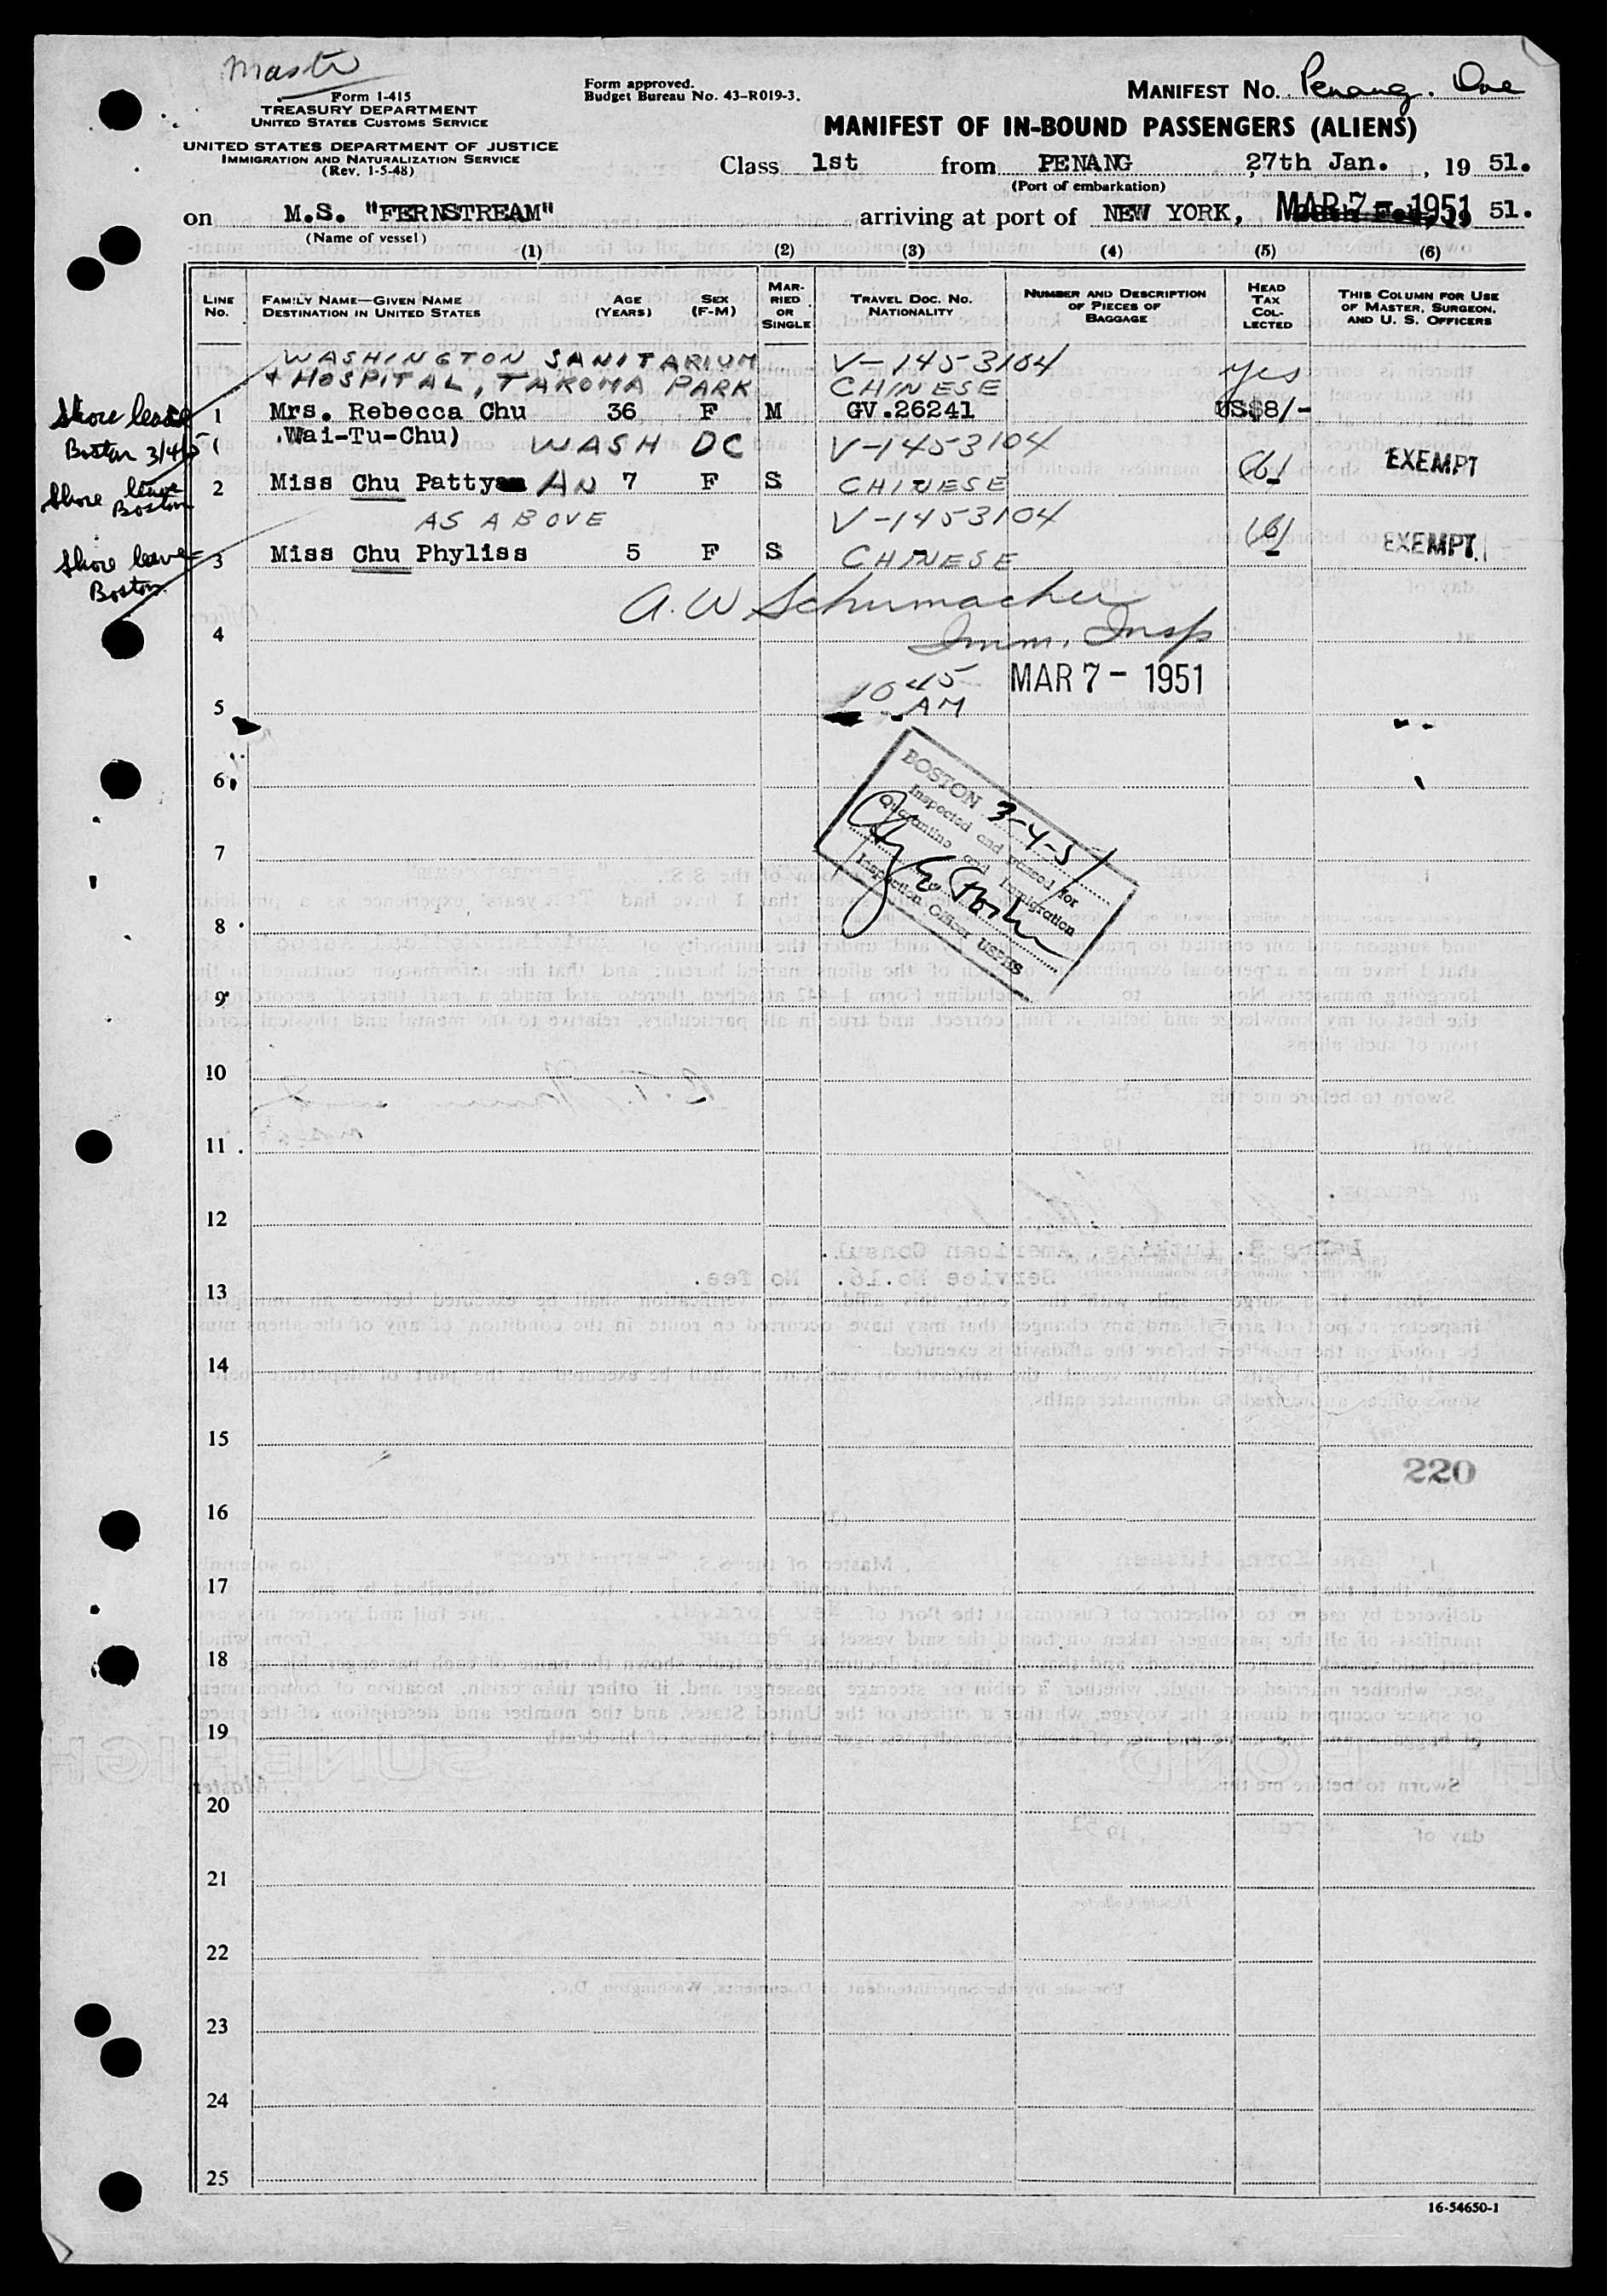 Form 1-415
TREASURY DEPARTMENT
UNITED STATES CUSTOMS SERVICE
UNITED STATES DEPARTMENT OF JUSTICE
IMMIGRATION AND NATURALIZATION SERVICE
(Rev. 1-5-48)
Form approved.
Budget Bureau No. 43-R019-3.
MANIFEST NO. Penang. One
MANIFEST OF IN-BOUND PASSENGERS (ALIENS)
Class 1st from PENANG 27th Jan., 19 51.
(Port of embarkation)
on M.S. "FERNSTREAM" arriving at port of NEW YORK, MAR 7 - 1951 51.
(Name of vessel)
(1) (2) (3) (4) (5) (6)
LINE No. FAMILY NAME—GIVEN NAME DESTINATION IN UNITED STATES AGE (YEARS) SEX (F-M) MARRIED OR SINGLE TRAVEL DOC. NO. NATIONALITY NUMBER AND DESCRIPTION OF PIECES OF BAGGAGE HEAD TAX COLLECTED THIS COLUMN FOR USE OF MASTER, SURGEON, AND U. S. OFFICERS
WASHINGTON SANITARIUM V-1453104
& HOSPITAL, TAKOMA PARK CHINESE yes
Shore leave 1 Mrs. Rebecca Chu 36 F M GV.26241 US$8/-
Boston 3/4/5 (Wai-Tu-Chu) WASH DC V-1453104
Shore leave Boston 2 Miss Chu Patty AN 7 F S CHINESE (6) EXEMPT
AS ABOVE V-1453104
Shore leave Boston 3 Miss Chu Phyliss 5 F S CHINESE (6) EXEMPT.
A. W Schumacher
4 Imm. Insp
10 45 AM MAR 7 - 1951
5
6
BOSTON 3-4-51
Inspected and passed for
Quarantine and Immigration
Inspection Officer USPHS
7
8
9
10
11
12
13
14
15
220
16
17
18
19
20
21
22
23
24
25
16-54650-1